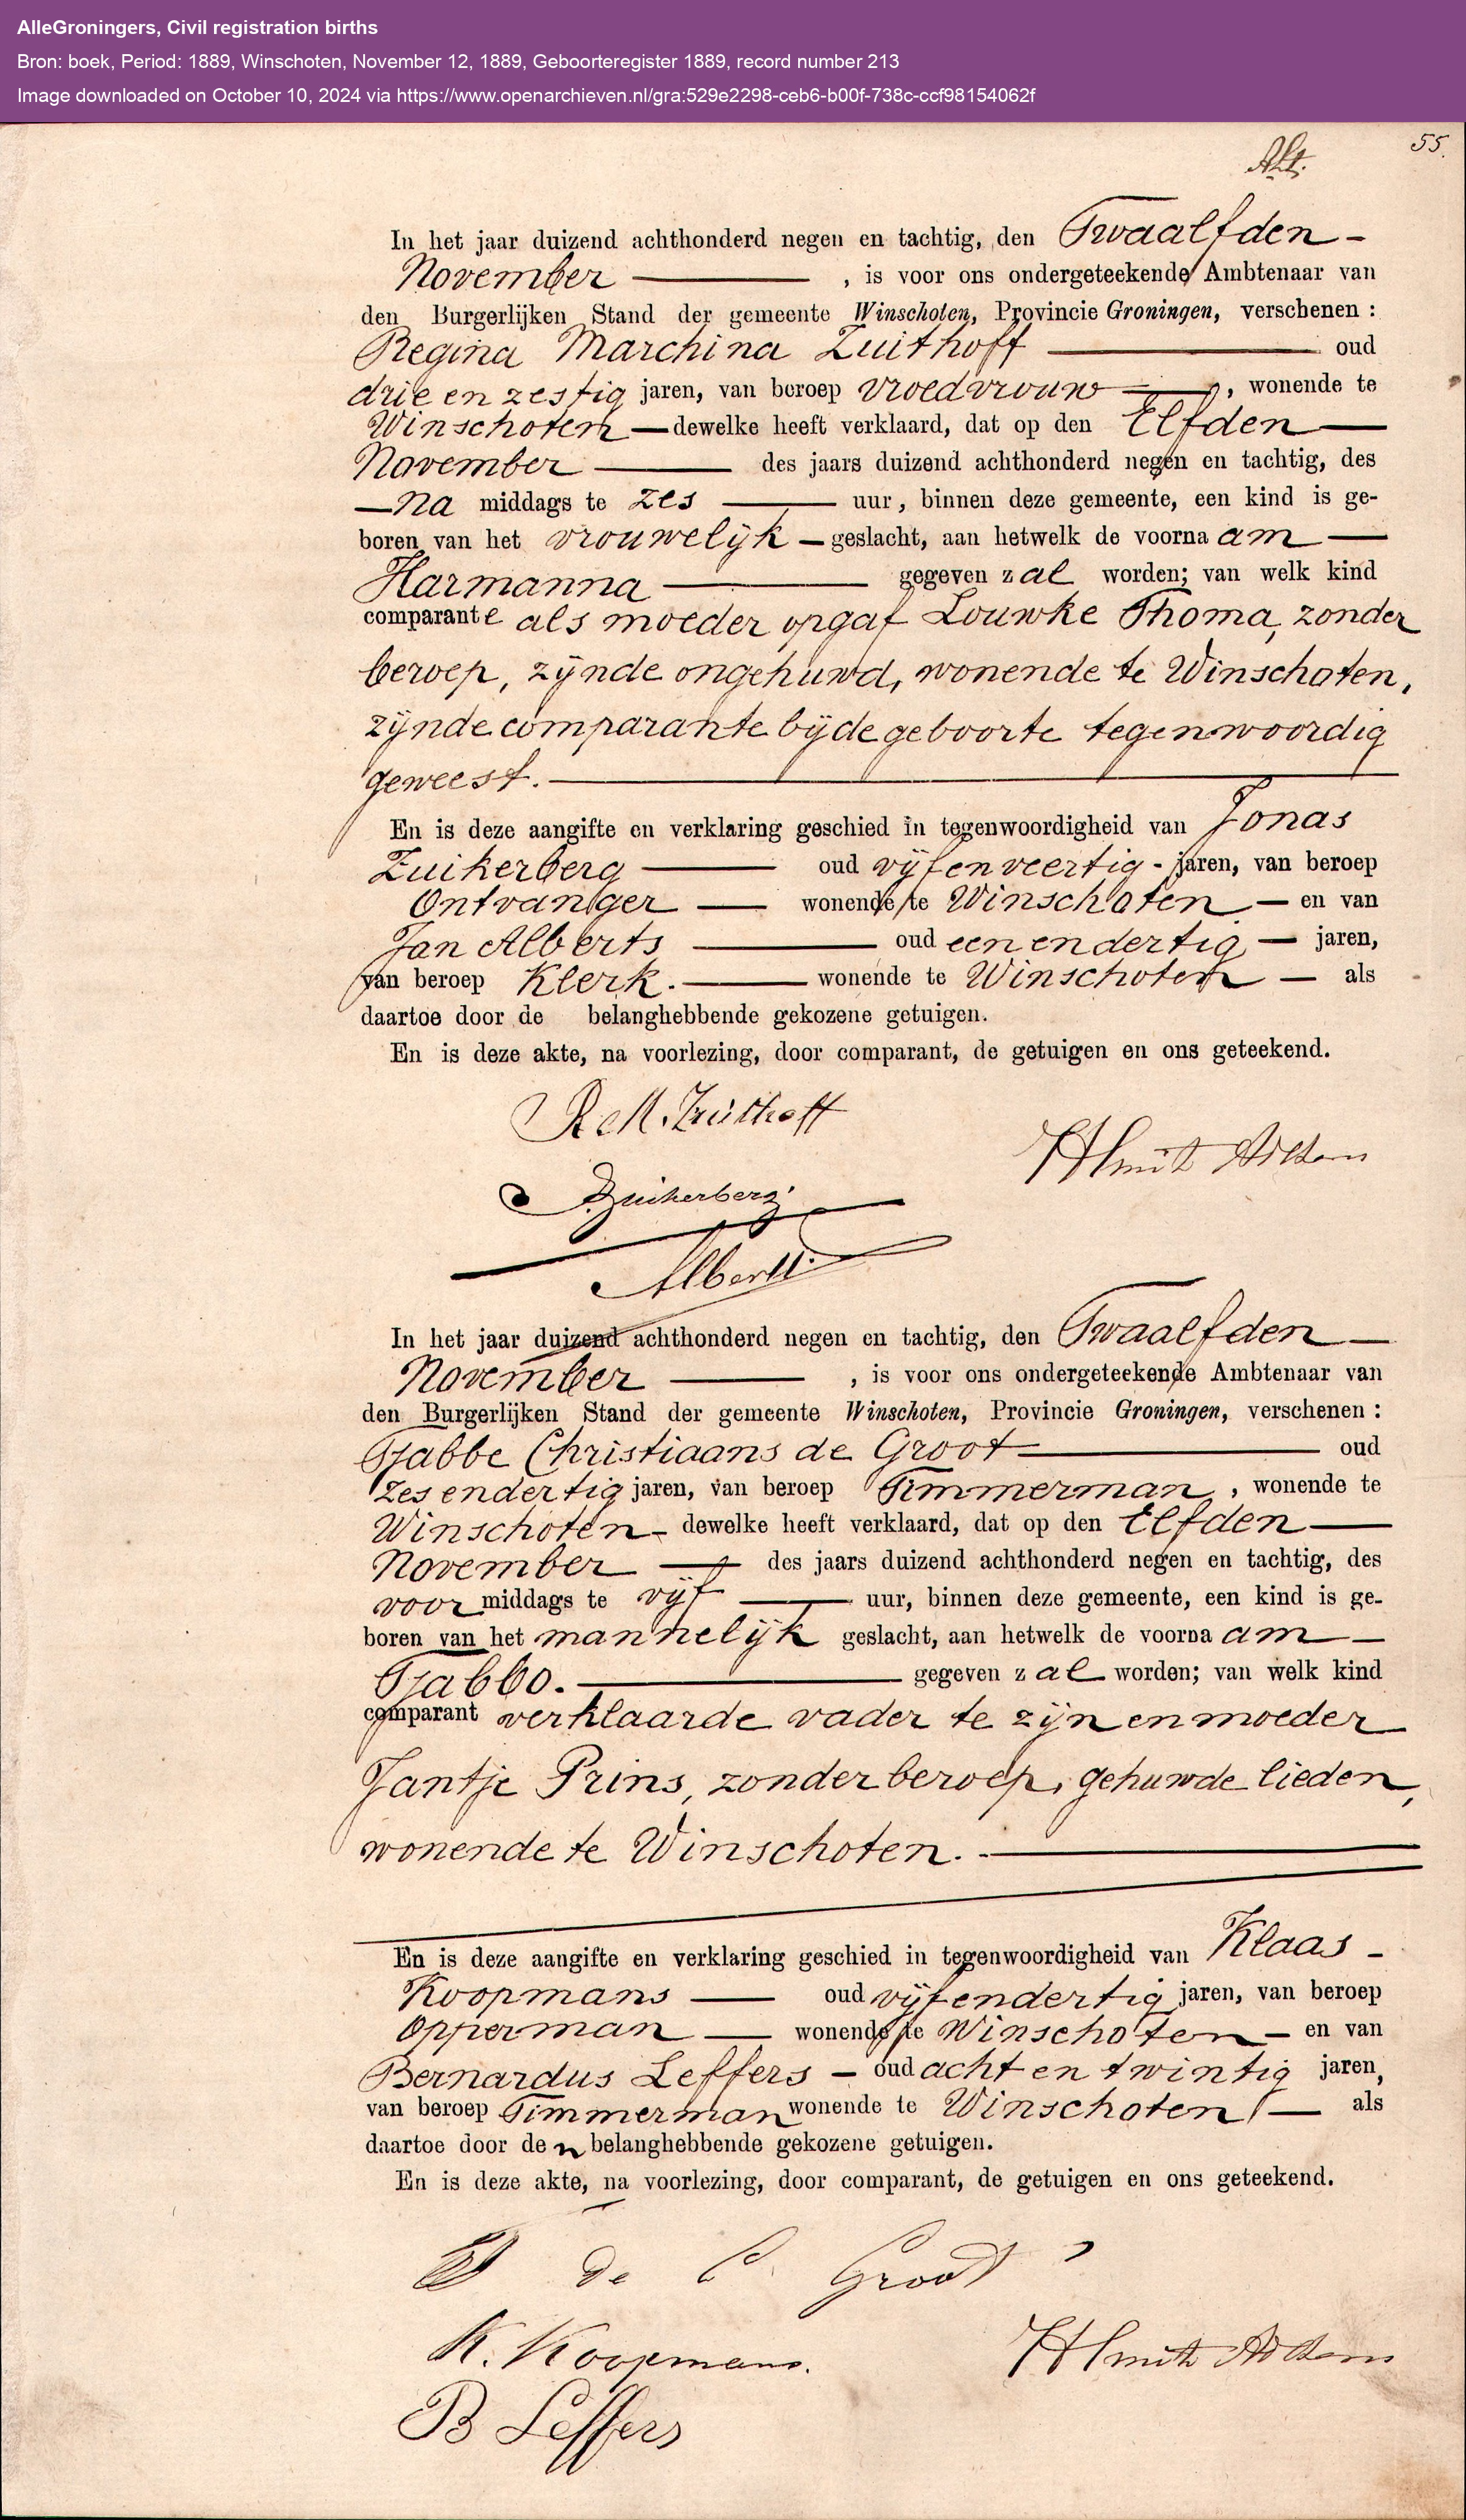 AlleGroningers, Civil registration births
Bron: boek, Period: 1889, Winschoten, November 12, 1889, Geboorteregister 1889, record number 213
Image downloaded on October 10, 2024 via https://www.openarchieven.nl/gra:529e2298-ceb6-b00f-738c-ccf98154062f
55.
In het jaar duizend achthonderd negen en tachtig, den Twaalfden
November, is voor ons ondergeteekende Ambtenaar van
den Burgerlijken Stand der gemeente Winschoten, Provincie Groningen, verschenen:
Regina Marchina Zuithoff oud
drie en zestig jaren, van beroep vroedvrouw, wonende te
Winschoten dewelke heeft verklaard, dat op den Elfden
November des jaars duizend achthonderd negen en tachtig, des
na middags te zes uur, binnen deze gemeente, een kind is ge-
boren van het vrouwelijk geslacht, aan hetwelk de voornaam
Harmanna gegeven zal worden; van welk kind
comparante als moeder opgaf Louwke Thoma, zonder
beroep, zijnde ongehuwd, wonende te Winschoten,
zijnde comparante bij de geboorte tegenwoordig
geweest.
En is deze aangifte en verklaring geschied in tegenwoordigheid van Jonas
Zuikerberg oud vijf en veertig jaren, van beroep
Ontvanger wonende te Winschoten en van
Jan Alberts oud een en dertig jaren,
van beroep Klerk. wonende te Winschoten als
daartoe door de belanghebbende gekozene getuigen.
En is deze akte, na voorlezing, door comparant, de getuigen en ons geteekend.
R M. Zuithoff
Zuikerberg
Alberts
In het jaar duizend achthonderd negen en tachtig, den Twaalfden
November, is voor ons ondergeteekende Ambtenaar van
den Burgerlijken Stand der gemeente Winschoten, Provincie Groningen, verschenen:
Tjabbe Christiaans de Groot oud
zes en dertig jaren, van beroep Timmerman, wonende te
Winschoten dewelke heeft verklaard, dat op den Elfden
November des jaars duizend achthonderd negen en tachtig, des
voor middags te vijf uur, binnen deze gemeente, een kind is ge-
boren van het mannelijk geslacht, aan hetwelk de voornaam
Tjabbo. gegeven zal worden; van welk kind
comparant verklaarde vader te zijn en moeder
Jantje Prins, zonder beroep, gehuwde lieden,
wonende te Winschoten.
En is deze aangifte en verklaring geschied in tegenwoordigheid van Klaas
Koopmans oud vijf en dertig jaren, van beroep
Opperman wonende te Winschoten en van
Bernardus Leffers oud acht en twintig jaren,
van beroep Timmerman wonende te Winschoten als
daartoe door den belanghebbende gekozene getuigen.
En is deze akte, na voorlezing, door comparant, de getuigen en ons geteekend.
de C Groot
K. Koopmans.
B Leffers